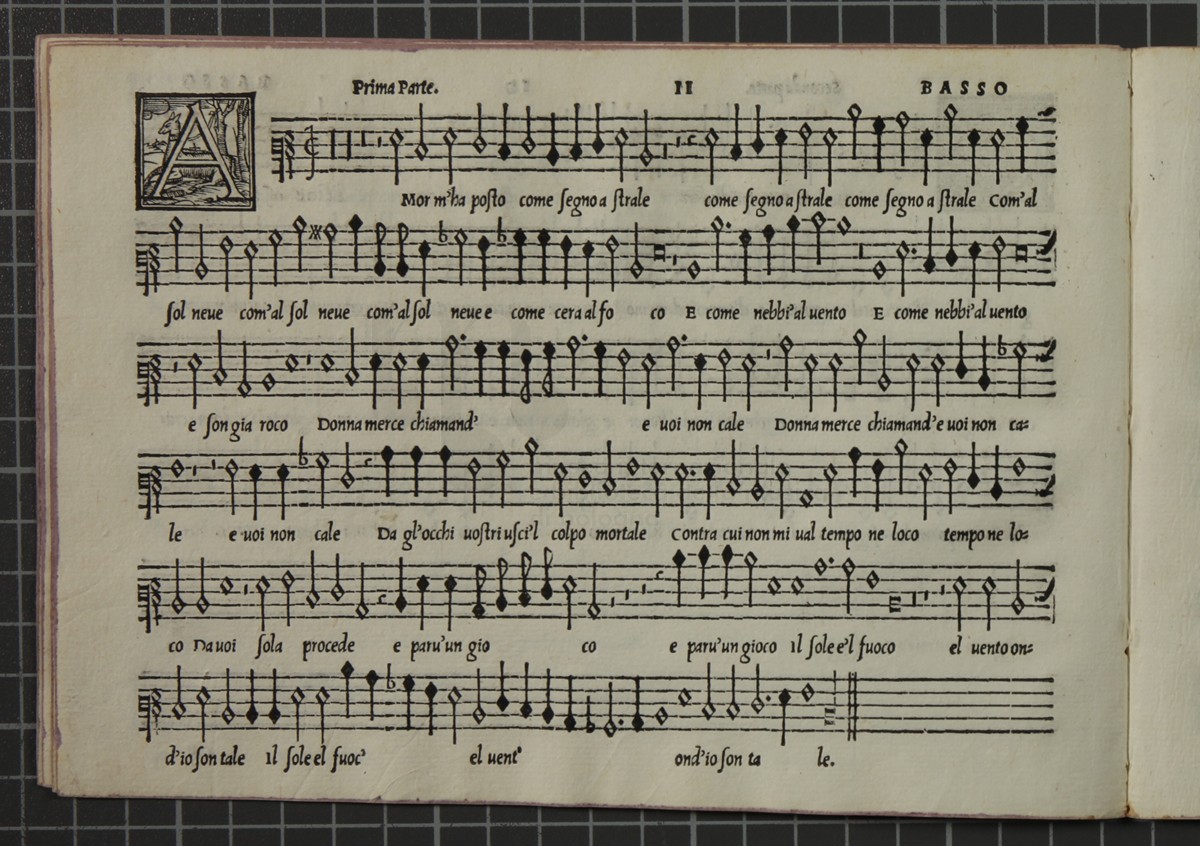 Prima Parte. II BASSO
AMor m'ha posto come segno a strale come segno a strale come segno a strale Com'al
sol neue com'al sol neue com'al sol neue e come cera al fo co E come nebbi'al uento E come nebbi'al uento
e son gia roco Donna merce chiamand' e uoi non cale Donna merce chiamand'e uoi non ca-
le e uoi non cale Da gl'occhi uostri usci'l colpo mortale Contra cui non mi ual tempo ne loco tempo ne lo-
co Da uoi sola procede e paru'un gio co e paru'un gioco Il sole e'l fuoco el uento on-
d'io son tale Il sole el fuoc' el uent' ond'io son ta le.